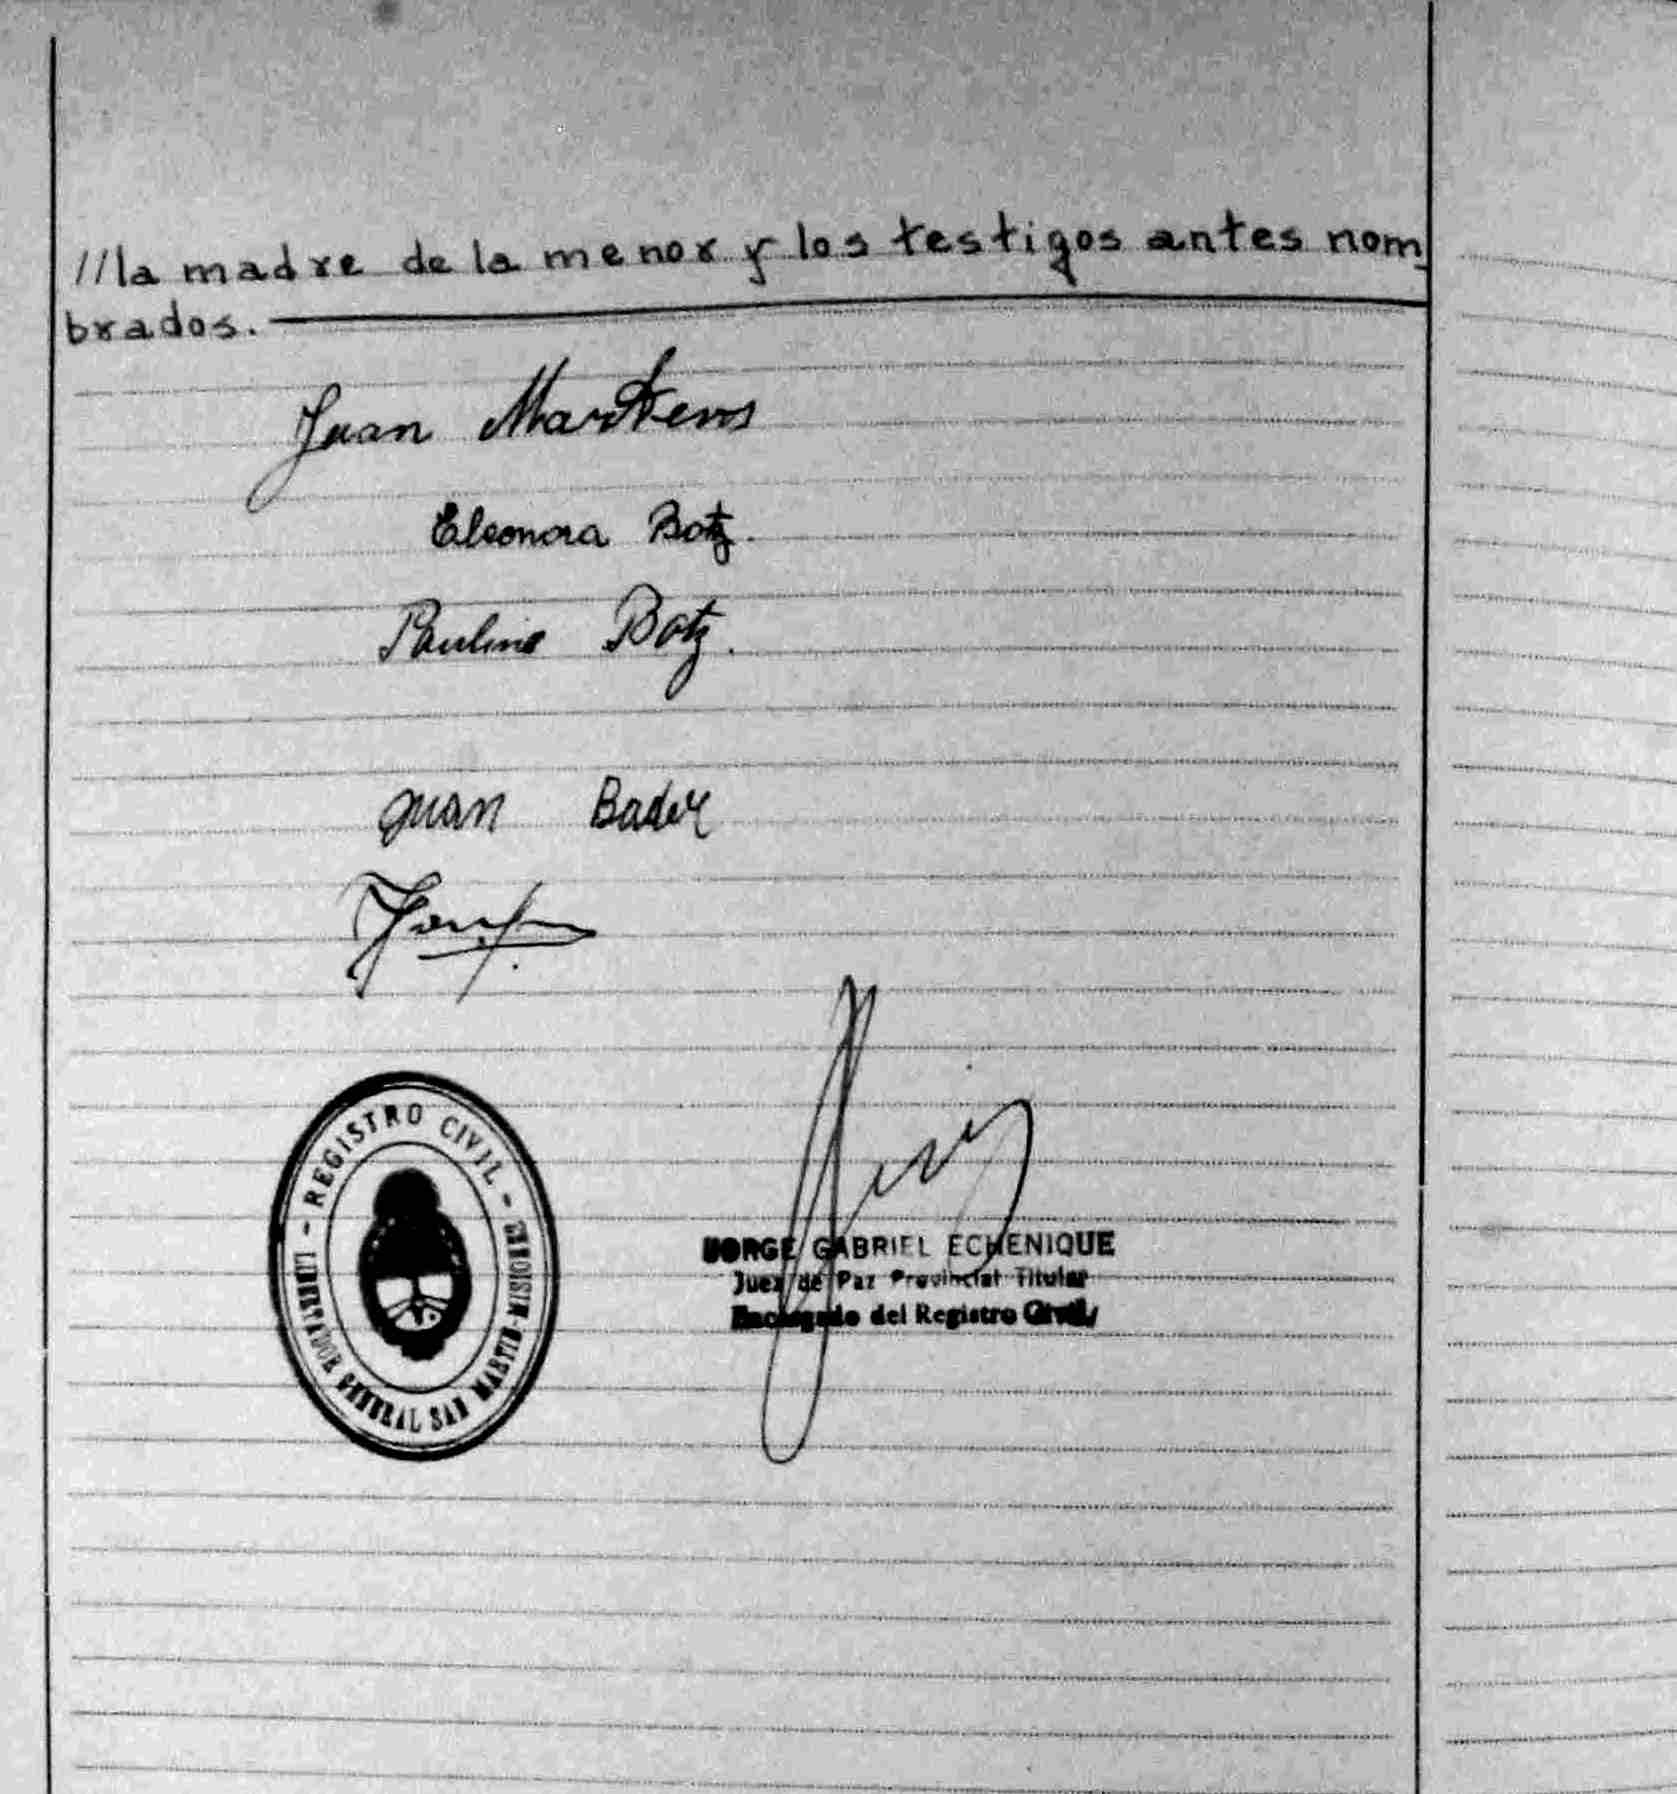 //la madre de la menor y los testigos antes nom
brados.
Juan Martens
Eleonora Botz.
Paulina Botz.
Juan Bader
- REGISTRO CIVIL -
LIBERTADOR GENERAL SAN MARTIN-MISIONES
JORGE GABRIEL ECHENIQUE
Juez de Paz Provincial Titular
Encargado del Registro Civil